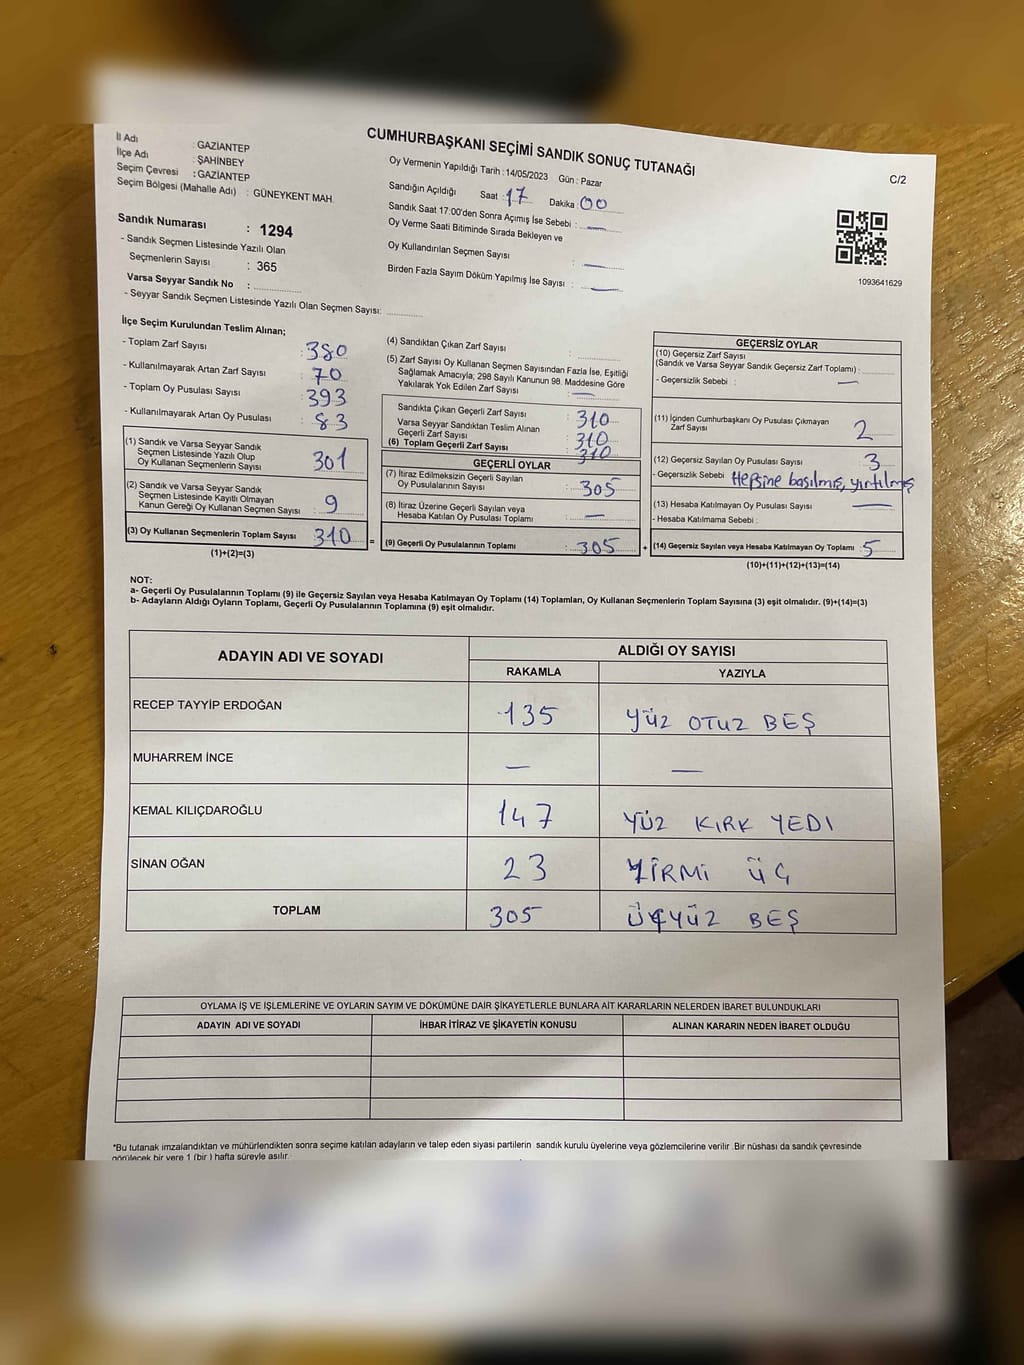 CUMHURBAŞKANI SEÇİMİ SANDIK SONUÇ TUTANAĞI
C/2
İl Adı : GAZİANTEP
İlçe Adı : ŞAHİNBEY
Seçim Çevresi : GAZİANTEP
Seçim Bölgesi (Mahalle Adı) : GÜNEYKENT MAH.
Sandık Numarası : 1294
- Sandık Seçmen Listesinde Yazılı Olan
Seçmenlerin Sayısı : 365
Varsa Seyyar Sandık No :
- Seyyar Sandık Seçmen Listesinde Yazılı Olan Seçmen Sayısı:
Oy Vermenin Yapıldığı Tarih : 14/05/2023 Gün : Pazar
Sandığın Açıldığı Saat : 17 Dakika : 00
Sandık Saat 17:00'den Sonra Açımış İse Sebebi : —
Oy Verme Saati Bitiminde Sırada Bekleyen ve
Oy Kullandırılan Seçmen Sayısı : —
Birden Fazla Sayım Döküm Yapılmış İse Sayısı : —
1093641629
İlçe Seçim Kurulundan Teslim Alınan;
- Toplam Zarf Sayısı : 380
- Kullanılmayarak Artan Zarf Sayısı : 70
- Toplam Oy Pusulası Sayısı : 393
- Kullanılmayarak Artan Oy Pusulası : 83
(1) Sandık ve Varsa Seyyar Sandık
Seçmen Listesinde Yazılı Olup
Oy Kullanan Seçmenlerin Sayısı 301
(2) Sandık ve Varsa Seyyar Sandık
Seçmen Listesinde Kayıtlı Olmayan
Kanun Gereği Oy Kullanan Seçmen Sayısı : 9
(3) Oy Kullanan Seçmenlerin Toplam Sayısı : 310 =
(1)+(2)=(3)
(4) Sandıktan Çıkan Zarf Sayısı :
(5) Zarf Sayısı Oy Kullanan Seçmen Sayısından Fazla İse, Eşitliği
Sağlamak Amacıyla; 298 Sayılı Kanunun 98. Maddesine Göre
Yakılarak Yok Edilen Zarf Sayısı : —
Sandıkta Çıkan Geçerli Zarf Sayısı : 310
Varsa Seyyar Sandıktan Teslim Alınan
Geçerli Zarf Sayısı : 310
(6) Toplam Geçerli Zarf Sayısı 310
GEÇERLİ OYLAR
(7) İtiraz Edilmeksizin Geçerli Sayılan
Oy Pusulalarının Sayısı : 305
(8) İtiraz Üzerine Geçerli Sayılan veya
Hesaba Katılan Oy Pusulası Toplamı : —
(9) Geçerli Oy Pusulalarının Toplamı : 305 +
GEÇERSİZ OYLAR
(10) Geçersiz Zarf Sayısı
(Sandık ve Varsa Seyyar Sandık Geçersiz Zarf Toplamı) :
- Geçersizlik Sebebi : —
(11) İçinden Cumhurbaşkanı Oy Pusulası Çıkmayan
Zarf Sayısı : 2
(12) Geçersiz Sayılan Oy Pusulası Sayısı : 3
- Geçersizlik Sebebi : Hepsine basılmış, yırtılmış
(13) Hesaba Katılmayan Oy Pusulası Sayısı : —
- Hesaba Katılmama Sebebi :
(14) Geçersiz Sayılan veya Hesaba Katılmayan Oy Toplamı : 5
(10)+(11)+(12)+(13)=(14)
NOT:
a- Geçerli Oy Pusulalarının Toplamı (9) ile Geçersiz Sayılan veya Hesaba Katılmayan Oy Toplamı (14) Toplamları, Oy Kullanan Seçmenlerin Toplam Sayısına (3) eşit olmalıdır. (9)+(14)=(3)
b- Adayların Aldığı Oyların Toplamı, Geçerli Oy Pusulalarının Toplamına (9) eşit olmalıdır.
ADAYIN ADI VE SOYADI ALDIĞI OY SAYISI
RAKAMLA YAZIYLA
RECEP TAYYİP ERDOĞAN 135 YÜZ OTUZ BEŞ
MUHARREM İNCE — —
KEMAL KILIÇDAROĞLU 147 YÜZ KIRK YEDI
SİNAN OĞAN 23 YİRMİ ÜÇ
TOPLAM 305 ÜÇYÜZ BEŞ
OYLAMA İŞ VE İŞLEMLERİNE VE OYLARIN SAYIM VE DÖKÜMÜNE DAİR ŞİKAYETLERLE BUNLARA AİT KARARLARIN NELERDEN İBARET BULUNDUKLARI
ADAYIN ADI VE SOYADI İHBAR İTİRAZ VE ŞİKAYETİN KONUSU ALINAN KARARIN NEDEN İBARET OLDUĞU
*Bu tutanak imzalandıktan ve mühürlendikten sonra seçime katılan adayların ve talep eden siyasi partilerin sandık kurulu üyelerine veya gözlemcilerine verilir .Bir nüshası da sandık çevresinde
görülecek bir yere 1 (bir ) hafta süreyle asılır.